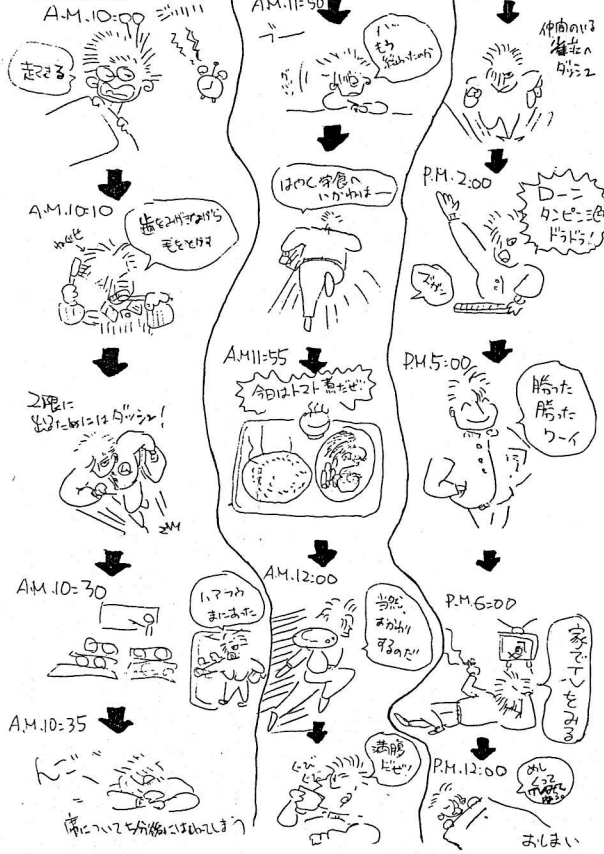 A.M.10:00
起きる
A.M.10:10
ねぐせ
歯をみがきながら
毛をとかす
2限に
出るためにはダッシュ!
A.M.10:30
ハァフゥ
まにあった
A.M.10:35
んご〜
席について5分後にはねてしまう
A.M.11:50
もう
終わったのか
はやく学食へ
いかねばー
A.M.11:55
今日はトマト煮だぜ!!
A.M.12:00
当然
おかわり
するのだ
ぐび
ぐび
満腹
だぜ!
仲間のいる
雀荘へ
ダッシュ
P.M.2:00
ローン
タンピン三色
ドラドラ!
P.M.5:00
勝った
勝った
ワーイ
P.M.6:00
家でTVをみる
P.M.12:00
めし
くって
おしまい